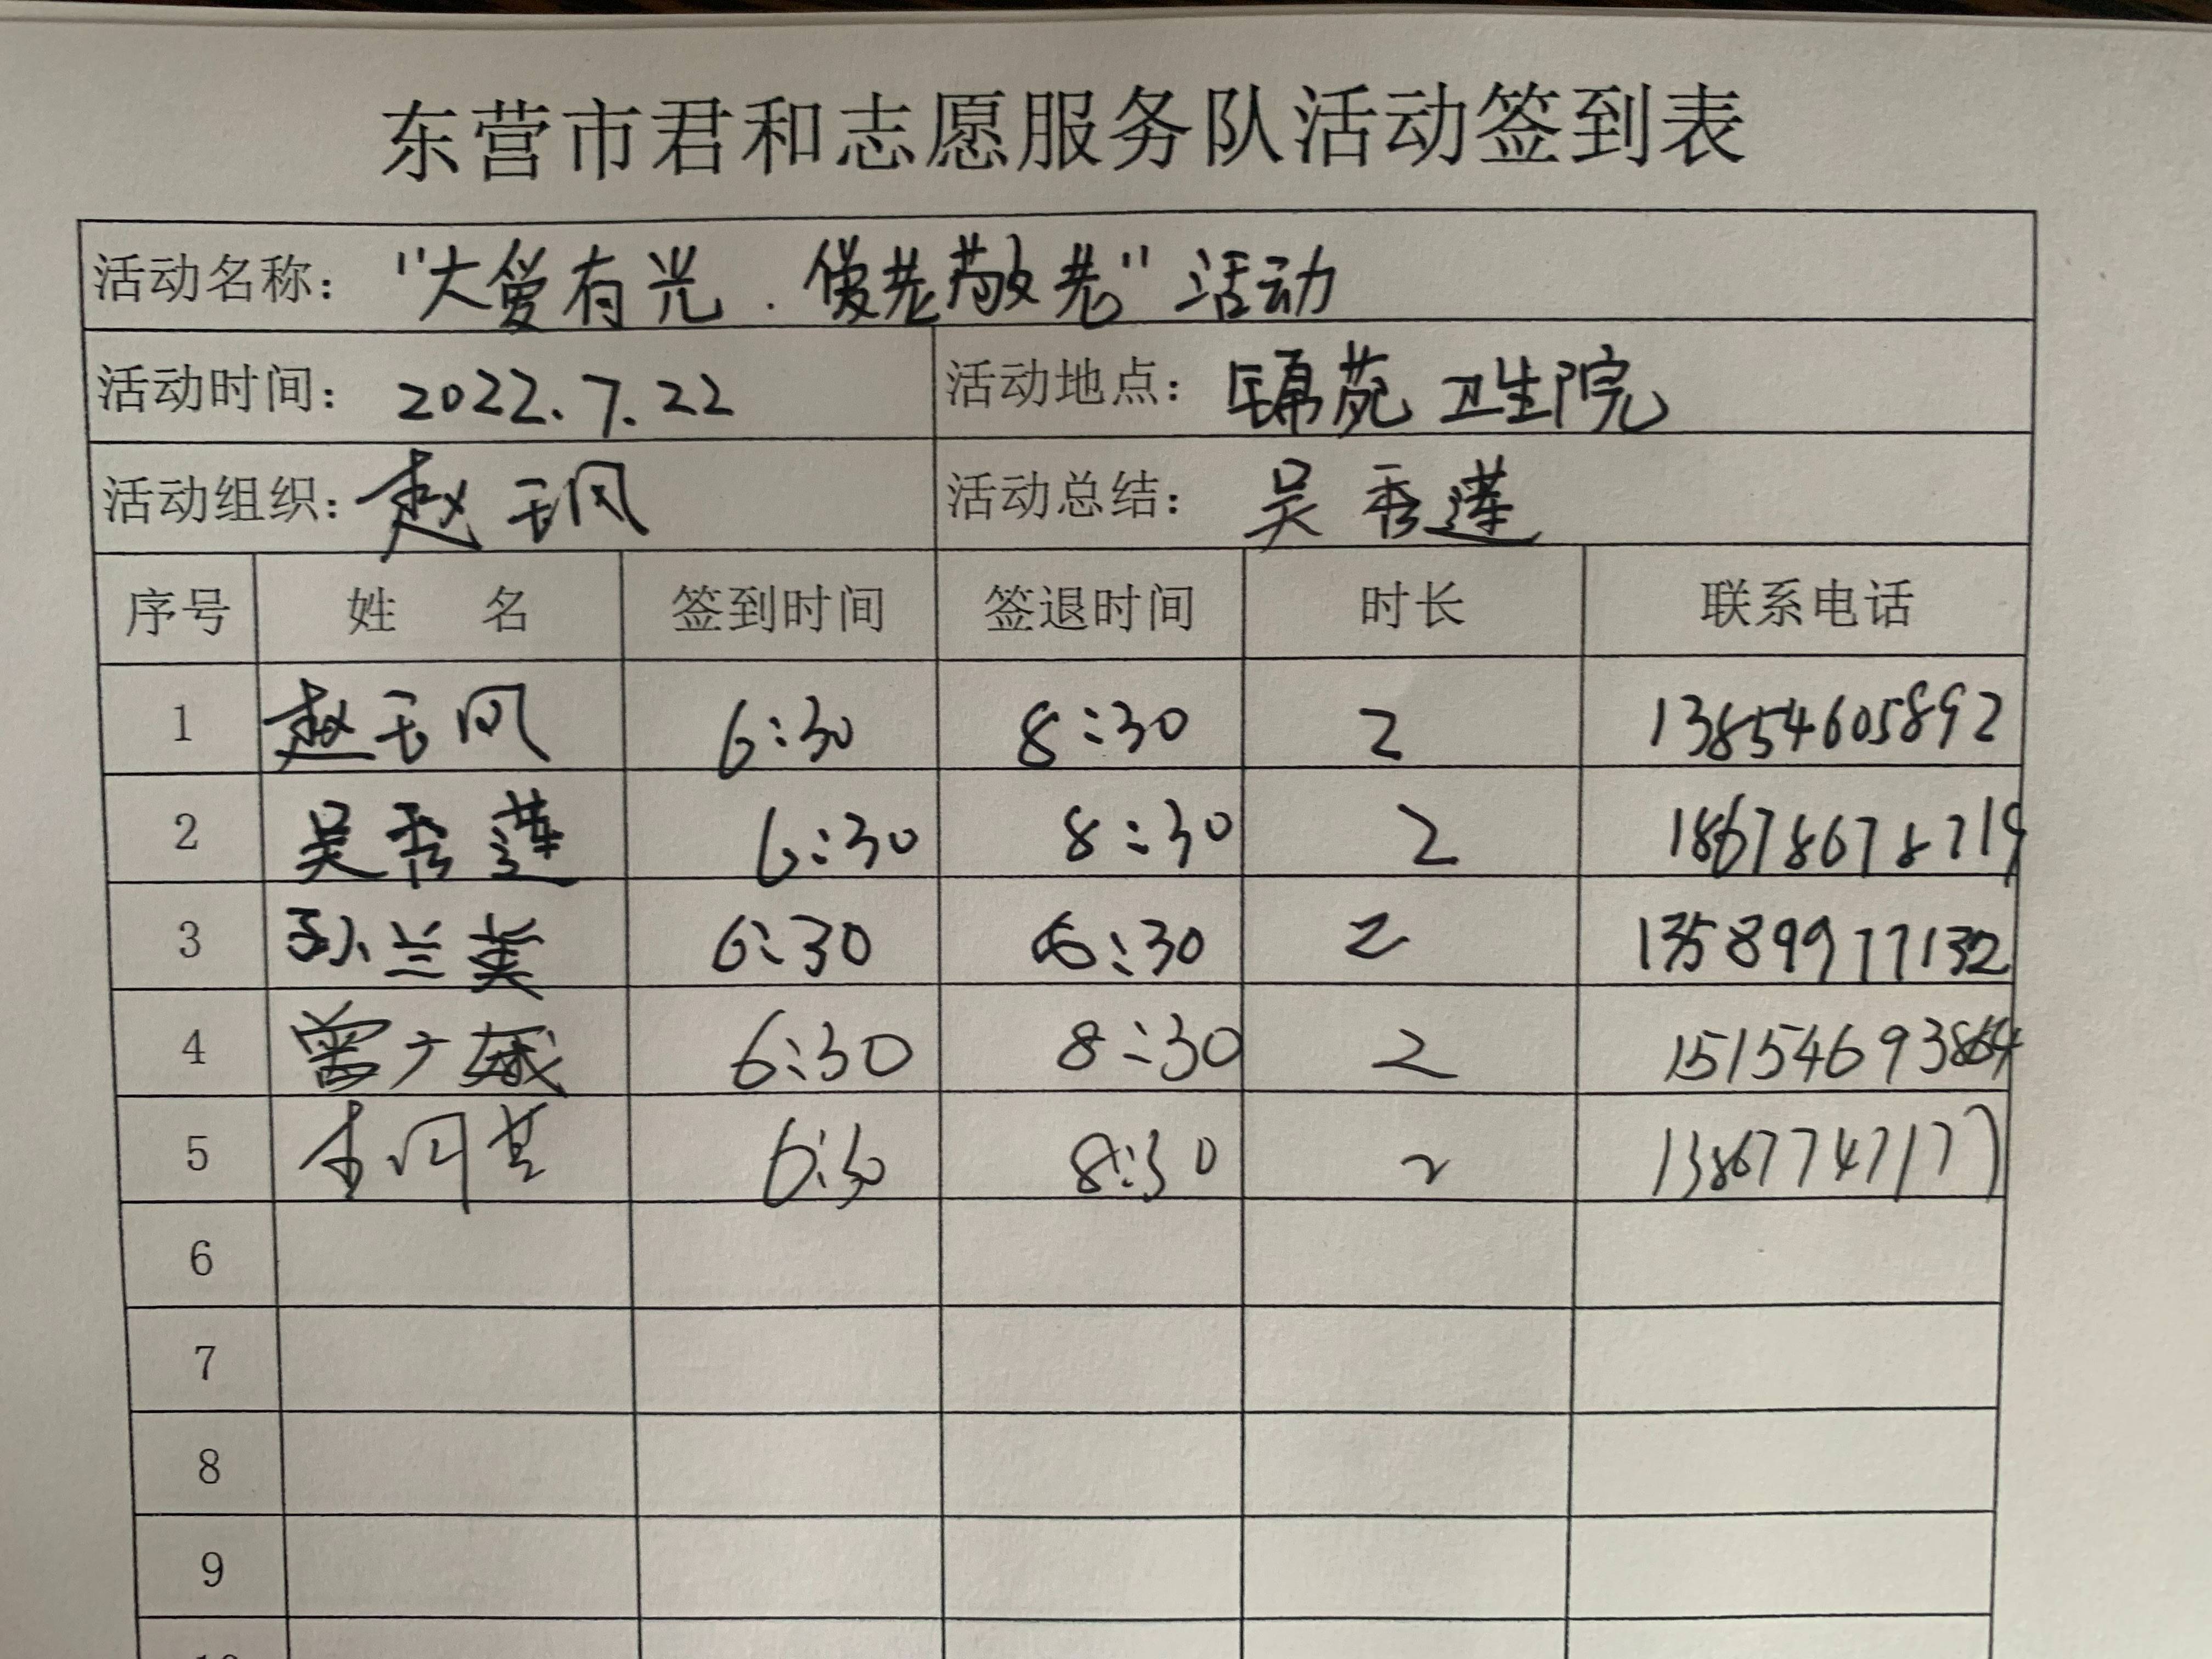 东营市君和志愿服务队活动签到表
活动名称： "大爱有光．爱老敬老"活动
活动时间： 2022.7.22 活动地点： 锦苑卫生院
活动组织： 赵玉凤 活动总结： 吴秀莲
序号 姓 名 签到时间 签退时间 时长 联系电话
1 赵玉凤 6:30 8:30 2 13854605892
2 吴秀莲 6:30 8:30 2 18678678719
3 孙兰美 6:30 8:30 2 13589977132
4 曾广城 6:30 8:30 2
5 6:30 8:30 2 13867747177
6
7
8
9